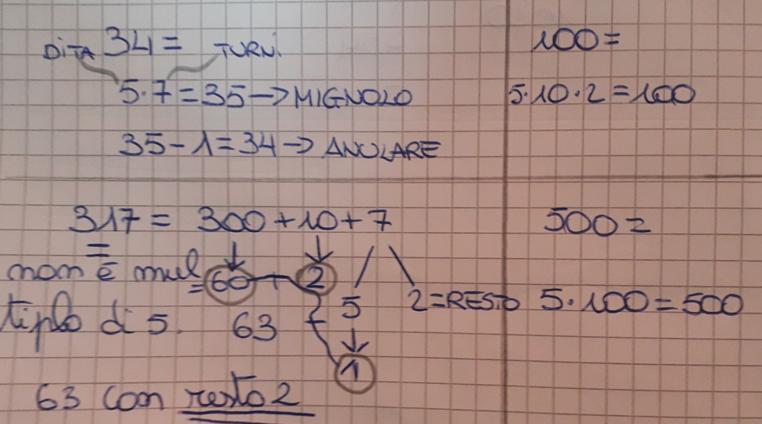 34=
DITA TURNI
5·7=35→MIGNOLO
35-1=34→ANULARE
100=
5·10·2=100
317= 300+10+7
non è mul
tiplo di 5.
60 + 2
5 2=RESTO
63
1
63 con resto 2
500=
5·100=500